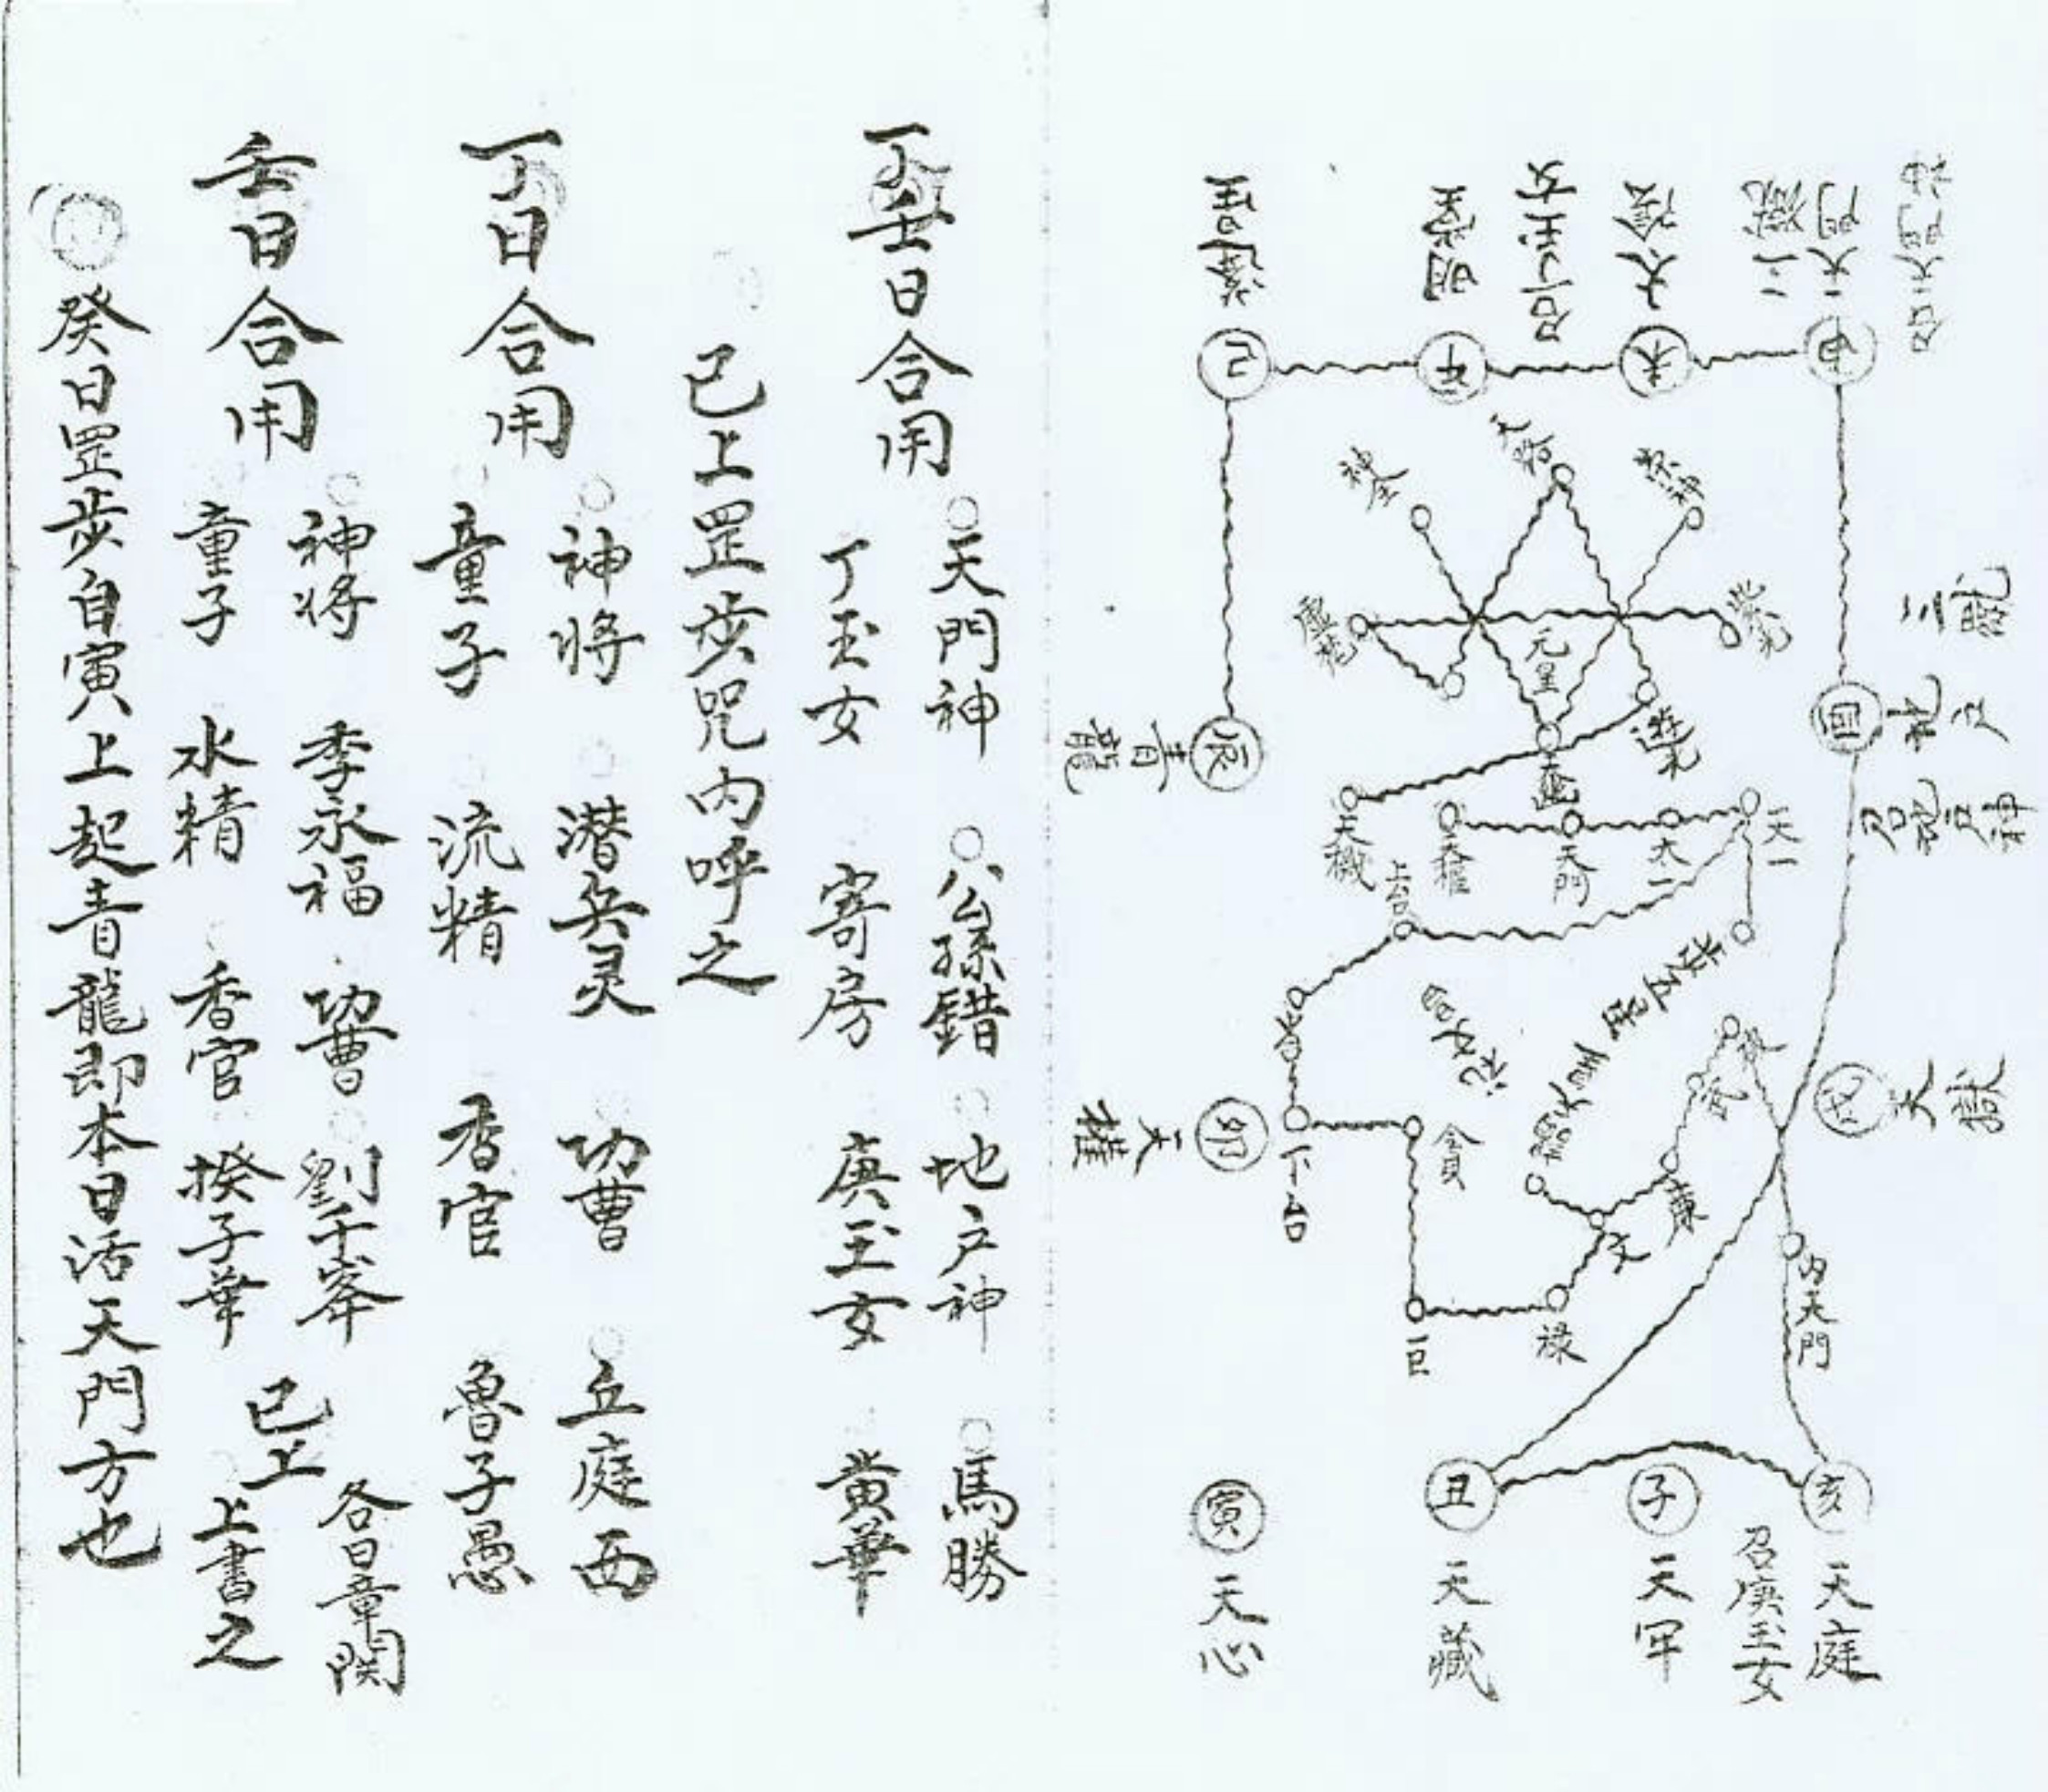 召天門神
天門
二獄
太陰
召丁玉女
明堂
蓬星
申
未
午
巳
辰
青龍
卯
天權
寅
天心
丑
天藏
子
天牢
亥
天庭
召庚玉女
戌
天獄
酉
地户
召地户神
元皇
天機
天權
天門
太一
天一
上台
下台
貪
巨
禄
文
廉
内天門
丁壬日合用
天門神 公孫錯 地户神 馬勝
丁玉女 寄房 庚玉女 黄華
已上罡步咒内呼之
丁日合用
神将 潜兵灵 功曹 丘庭西
童子 流精 香官 魯子愚
壬日合用
神将 季永福 功曹 劉千峯
童子 水精 香官 揆子華
已上
各日章関
上書之
癸日罡步自寅上起青龍即本日活天門方也